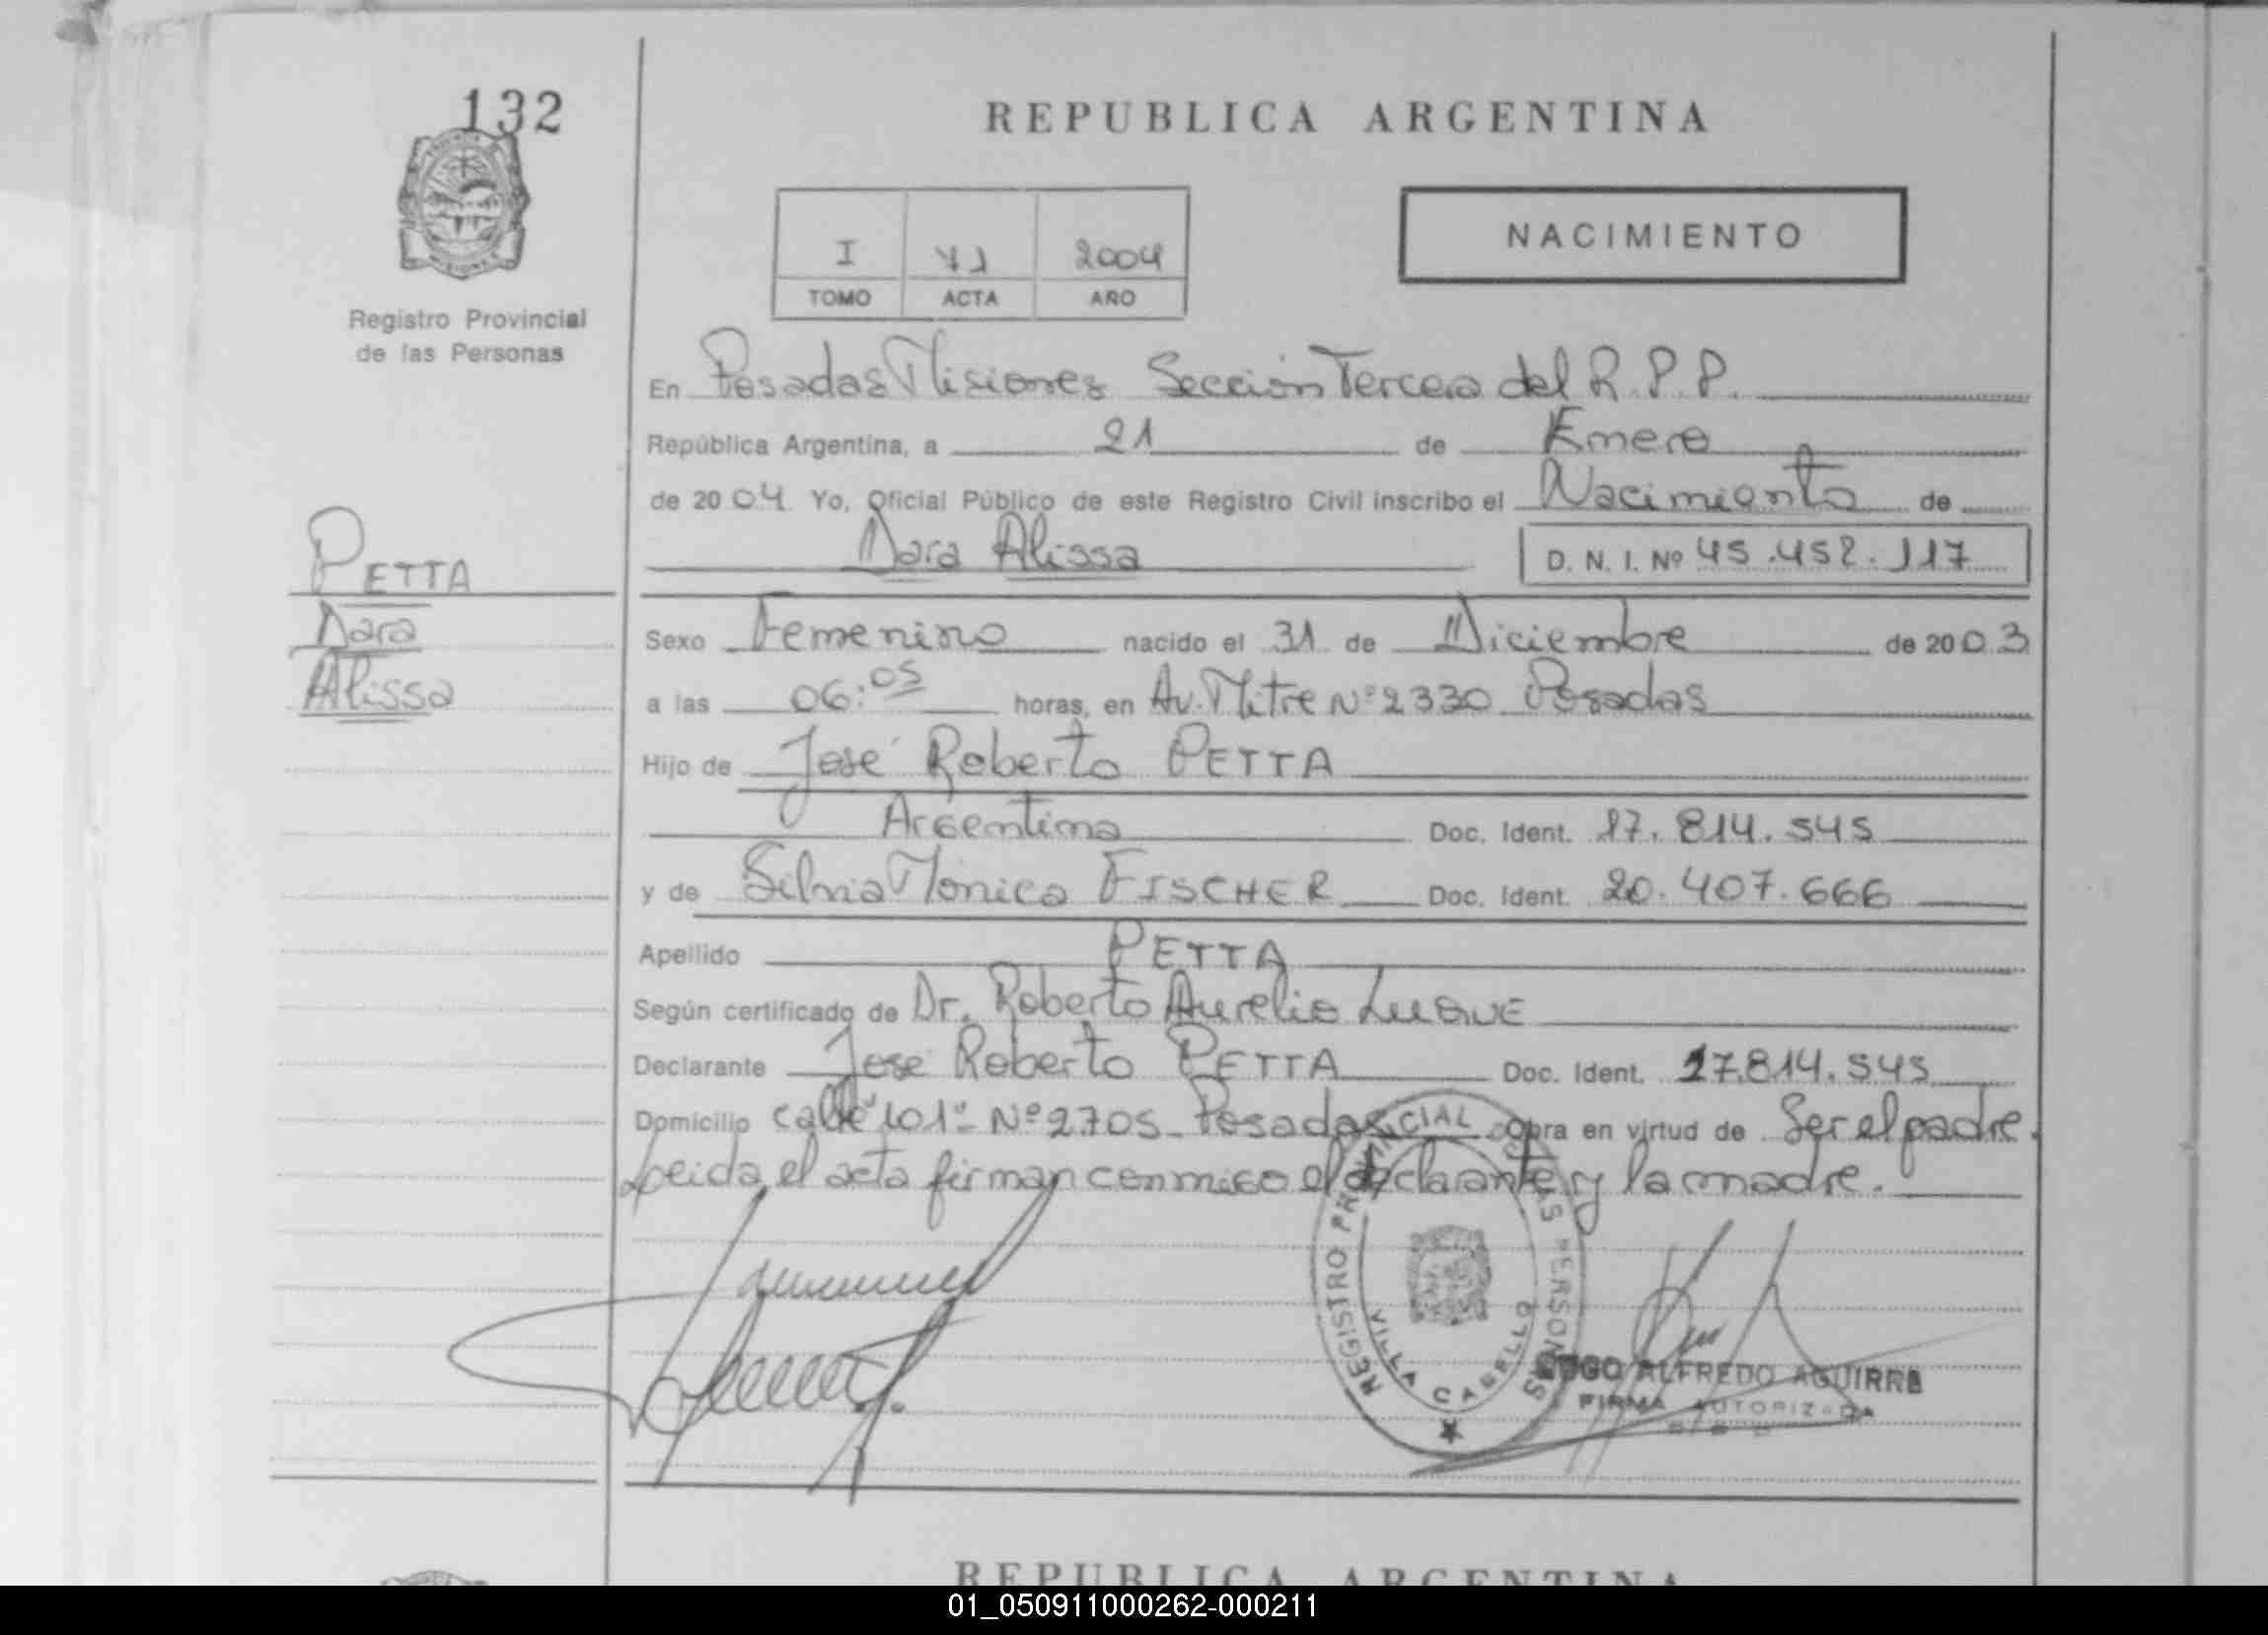 132
REPUBLICA ARGENTINA
NACIMIENTO
I 2004
TOMO ACTA AÑO
Registro Provincial
de las Personas
En Posadas Misiones Sección Tercera del R.P.P.
República Argentina, a 21 de Enero
de 2004 Yo, Oficial Público de este Registro Civil inscribo el Nacimiento de
Dara Alissa D. N. I. Nº 45.452.117
PETTA
Dara
Alissa
Sexo Femenino nacido el 31 de Diciembre de 2003
a las 06:05 horas, en Av. Mitre Nº 2330 Posadas
Hijo de José Roberto PETTA
Argentina Doc. Ident. 17.814.545
y de Silvia Mónica FISCHER Doc. Ident. 20.407.666
Apellido PETTA
Según certificado de Dr. Roberto Aurelio LUQUE
Declarante José Roberto PETTA Doc. Ident. 17.814.545
Domicilio calle 101 Nº 2705 Posadas obra en virtud de Ser el padre.
Leida el acta firman conmigo el declarante y la madre.
REGISTRO PROVINCIAL PERSONAS
VILLA CABELLO
HUGO ALFREDO AGUIRRE
FIRMA AUTORIZADA
REPUBLICA ARGENTINA
01_050911000262-000211